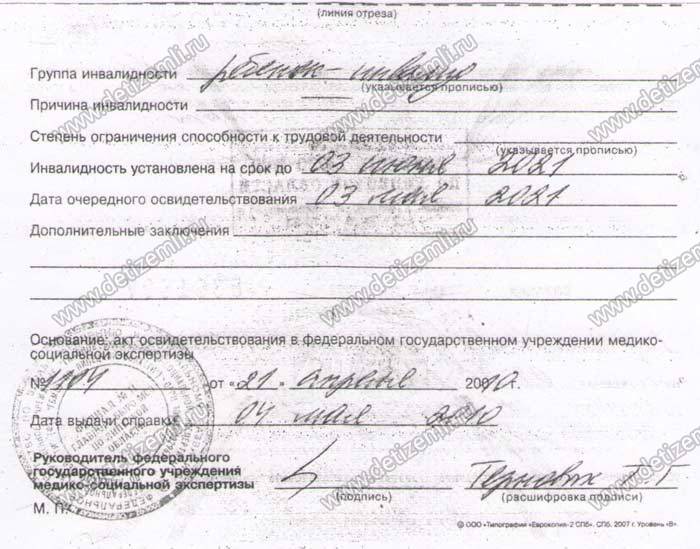 (линия отреза)
Группа инвалидности ребенок-инвалид
(указывается прописью)
Причина инвалидности
Степень ограничения способности к трудовой деятельности
(указывается прописью)
Инвалидность установлена на срок до 03 июня 2021
Дата очередного освидетельствования 03 мая 2021
Дополнительные заключения
Основание: акт освидетельствования в федеральном государственном учреждении медико-
социальной экспертизы
№ 1104 от «21» апреля 2010г.
Дата выдачи справки 04 мая 2010
Руководитель федерального
государственного учреждения
медико-социальной экспертизы Терновых Т.Т
(подпись) (расшифровка подписи)
М. П.
© ООО «Типография «Еврокопия-2 СПб». СПб. 2007 г. Уровень «В»
www.detizemli.ru